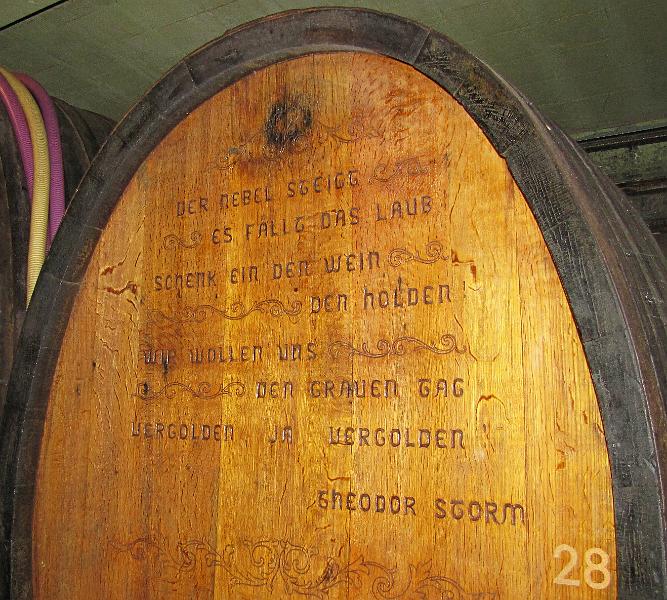 DER NEBEL STEIGT
ES FÄLLT DAS LAUB
SCHENK EIN DEN WEIN
DEN HOLDEN
WIR WOLLEN UNS
DEN GRAUEN TAG
VERGOLDEN JA VERGOLDEN
THEODOR STORM
28